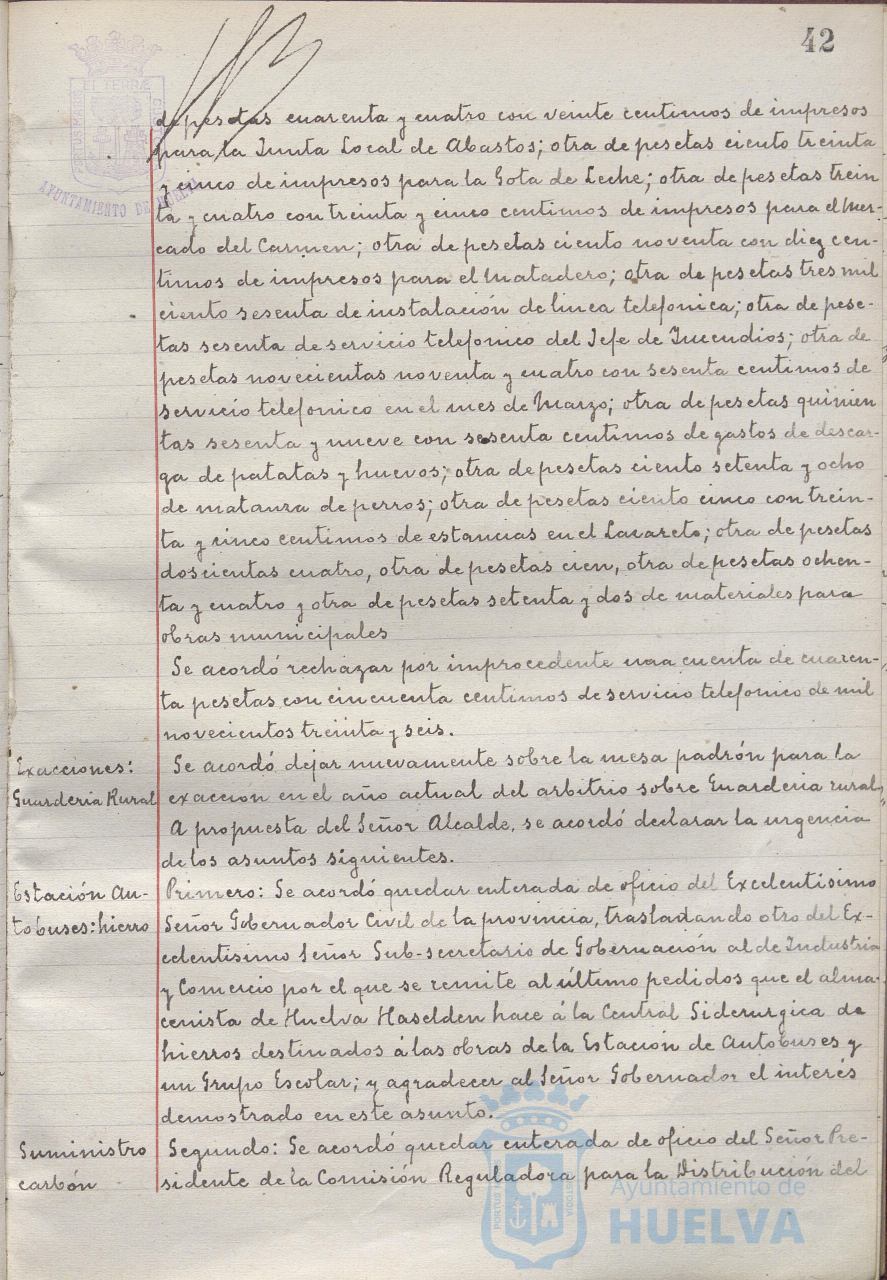 42
EL TERRÆ
PORTUS MARIS
CUSTODIA
AYUNTAMIENTO DE HUELVA
de pesetas cuarenta y cuatro con veinte centimos de impresos
para la Junta Local de Abastos; otra de pesetas ciento treinta
y cinco de impresos para la Gota de Leche; otra de pesetas trein
ta y cuatro con treinta y cinco centimos de impresos para el Mer-
cado del Carmen; otra de pesetas ciento noventa con diez cen-
timos de impresos para el Matadero; otra de pesetas tres mil
ciento sesenta de instalación de linea telefonica; otra de pese-
tas sesenta de servicio telefonico del Jefe de Incendios; otra de
pesetas novecientas noventa y cuatro con sesenta centimos de
servicio telefonico en el mes de Marzo; otra de pesetas quinien
tas sesenta y nueve con sesenta centimos de gastos de descar-
ga de patatas y huevos; otra de pesetas ciento setenta y ocho
de matanza de perros; otra de pesetas ciento cinco con trein-
ta y cinco centimos de estancias en el Lazareto; otra de pesetas
doscientas cuatro, otra de pesetas cien, otra de pesetas ochen-
ta y cuatro y otra de pesetas setenta y dos de materiales para
obras municipales
Se acordó rechazar por improcedente una cuenta de cuaren-
ta pesetas con cincuenta centimos de servicio telefonico de mil
novecientos treinta y seis.
Exacciones:
Guarderia Rural
Se acordó dejar nuevamente sobre la mesa padrón para la
exacción en el año actual del arbitrio sobre Guarderia rural,
A propuesta del Señor Alcalde, se acordó declarar la urgencia
de los asuntos siguientes.
Estación Au-
tobuses: hierro
Primero: Se acordó quedar enterada de oficio del Excelentisimo
Señor Gobernador Civil de la provincia, trasladando otro del Ex-
celentisimo Señor Sub-secretario de Gobernación al de Industria
y Comercio por el que se remite al último pedidos que el alma-
cenista de Huelva Haselden hace á la Central Siderurgica de
hierros destinados á las obras de la Estación de Autobuses y
un Grupo Escolar; y agradecer al Señor Gobernador el interés
demostrado en este asunto.
Suministro
carbón
Segundo: Se acordó quedar enterada de oficio del Señor Pre-
sidente de la Comisión Reguladora para la Distribución del
PORTUS
CUSTODIA
Ayuntamiento de
HUELVA